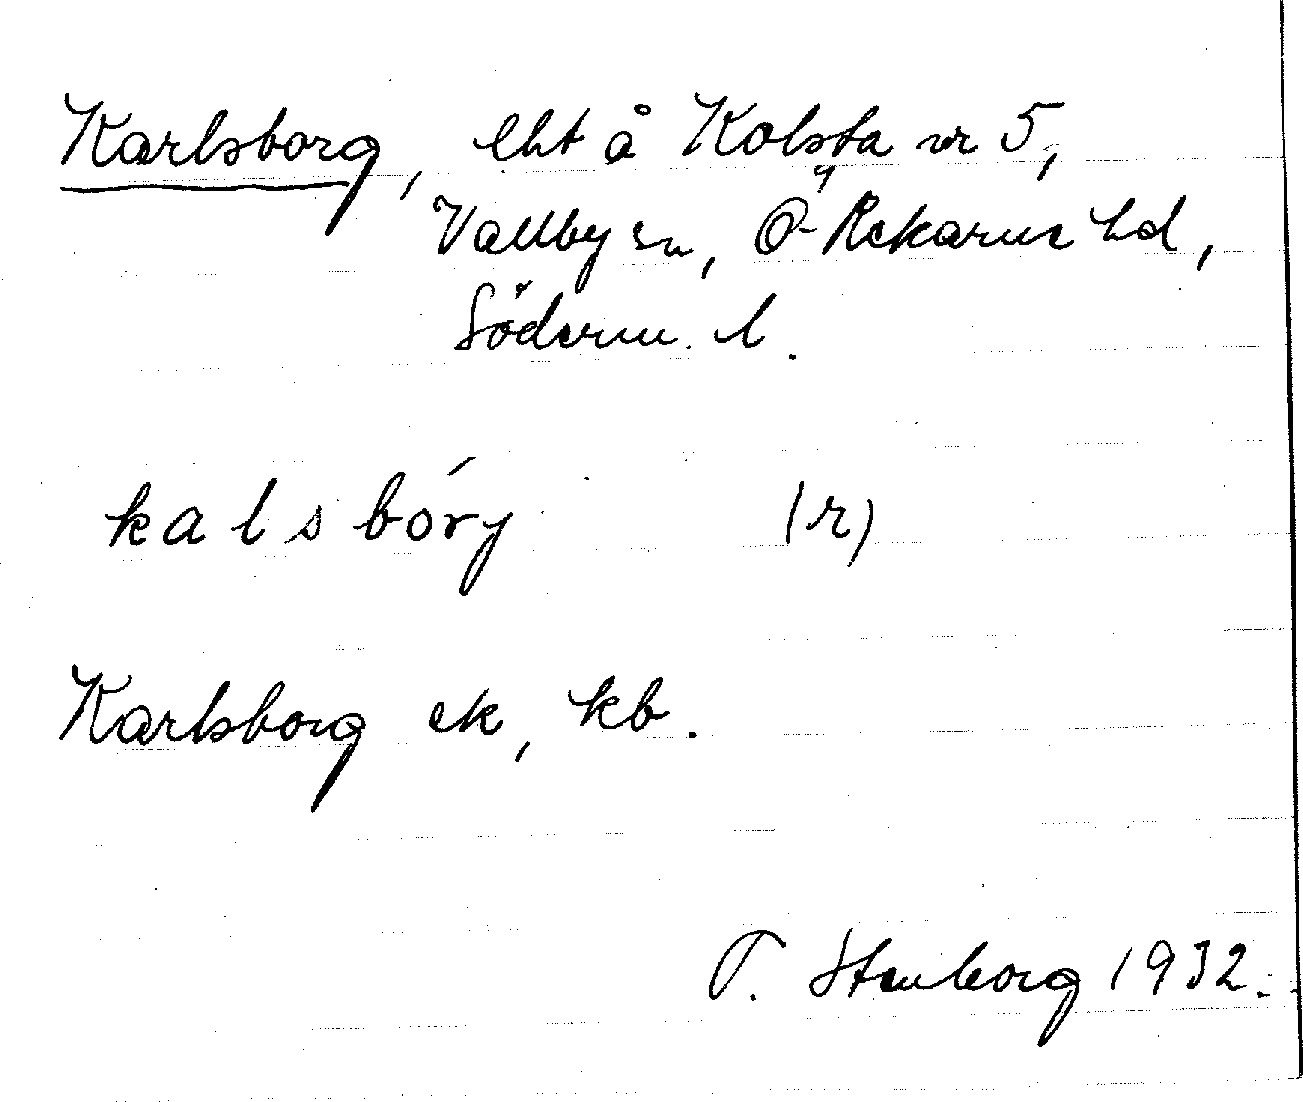 Karlsborg, lht å Kolsta nr 5,
Vallby sn, Ö Rekarne hd,
Söderm. l.
kalsbórj (r)
Karlsborg ek, kb.
T. Stenborg 1932.